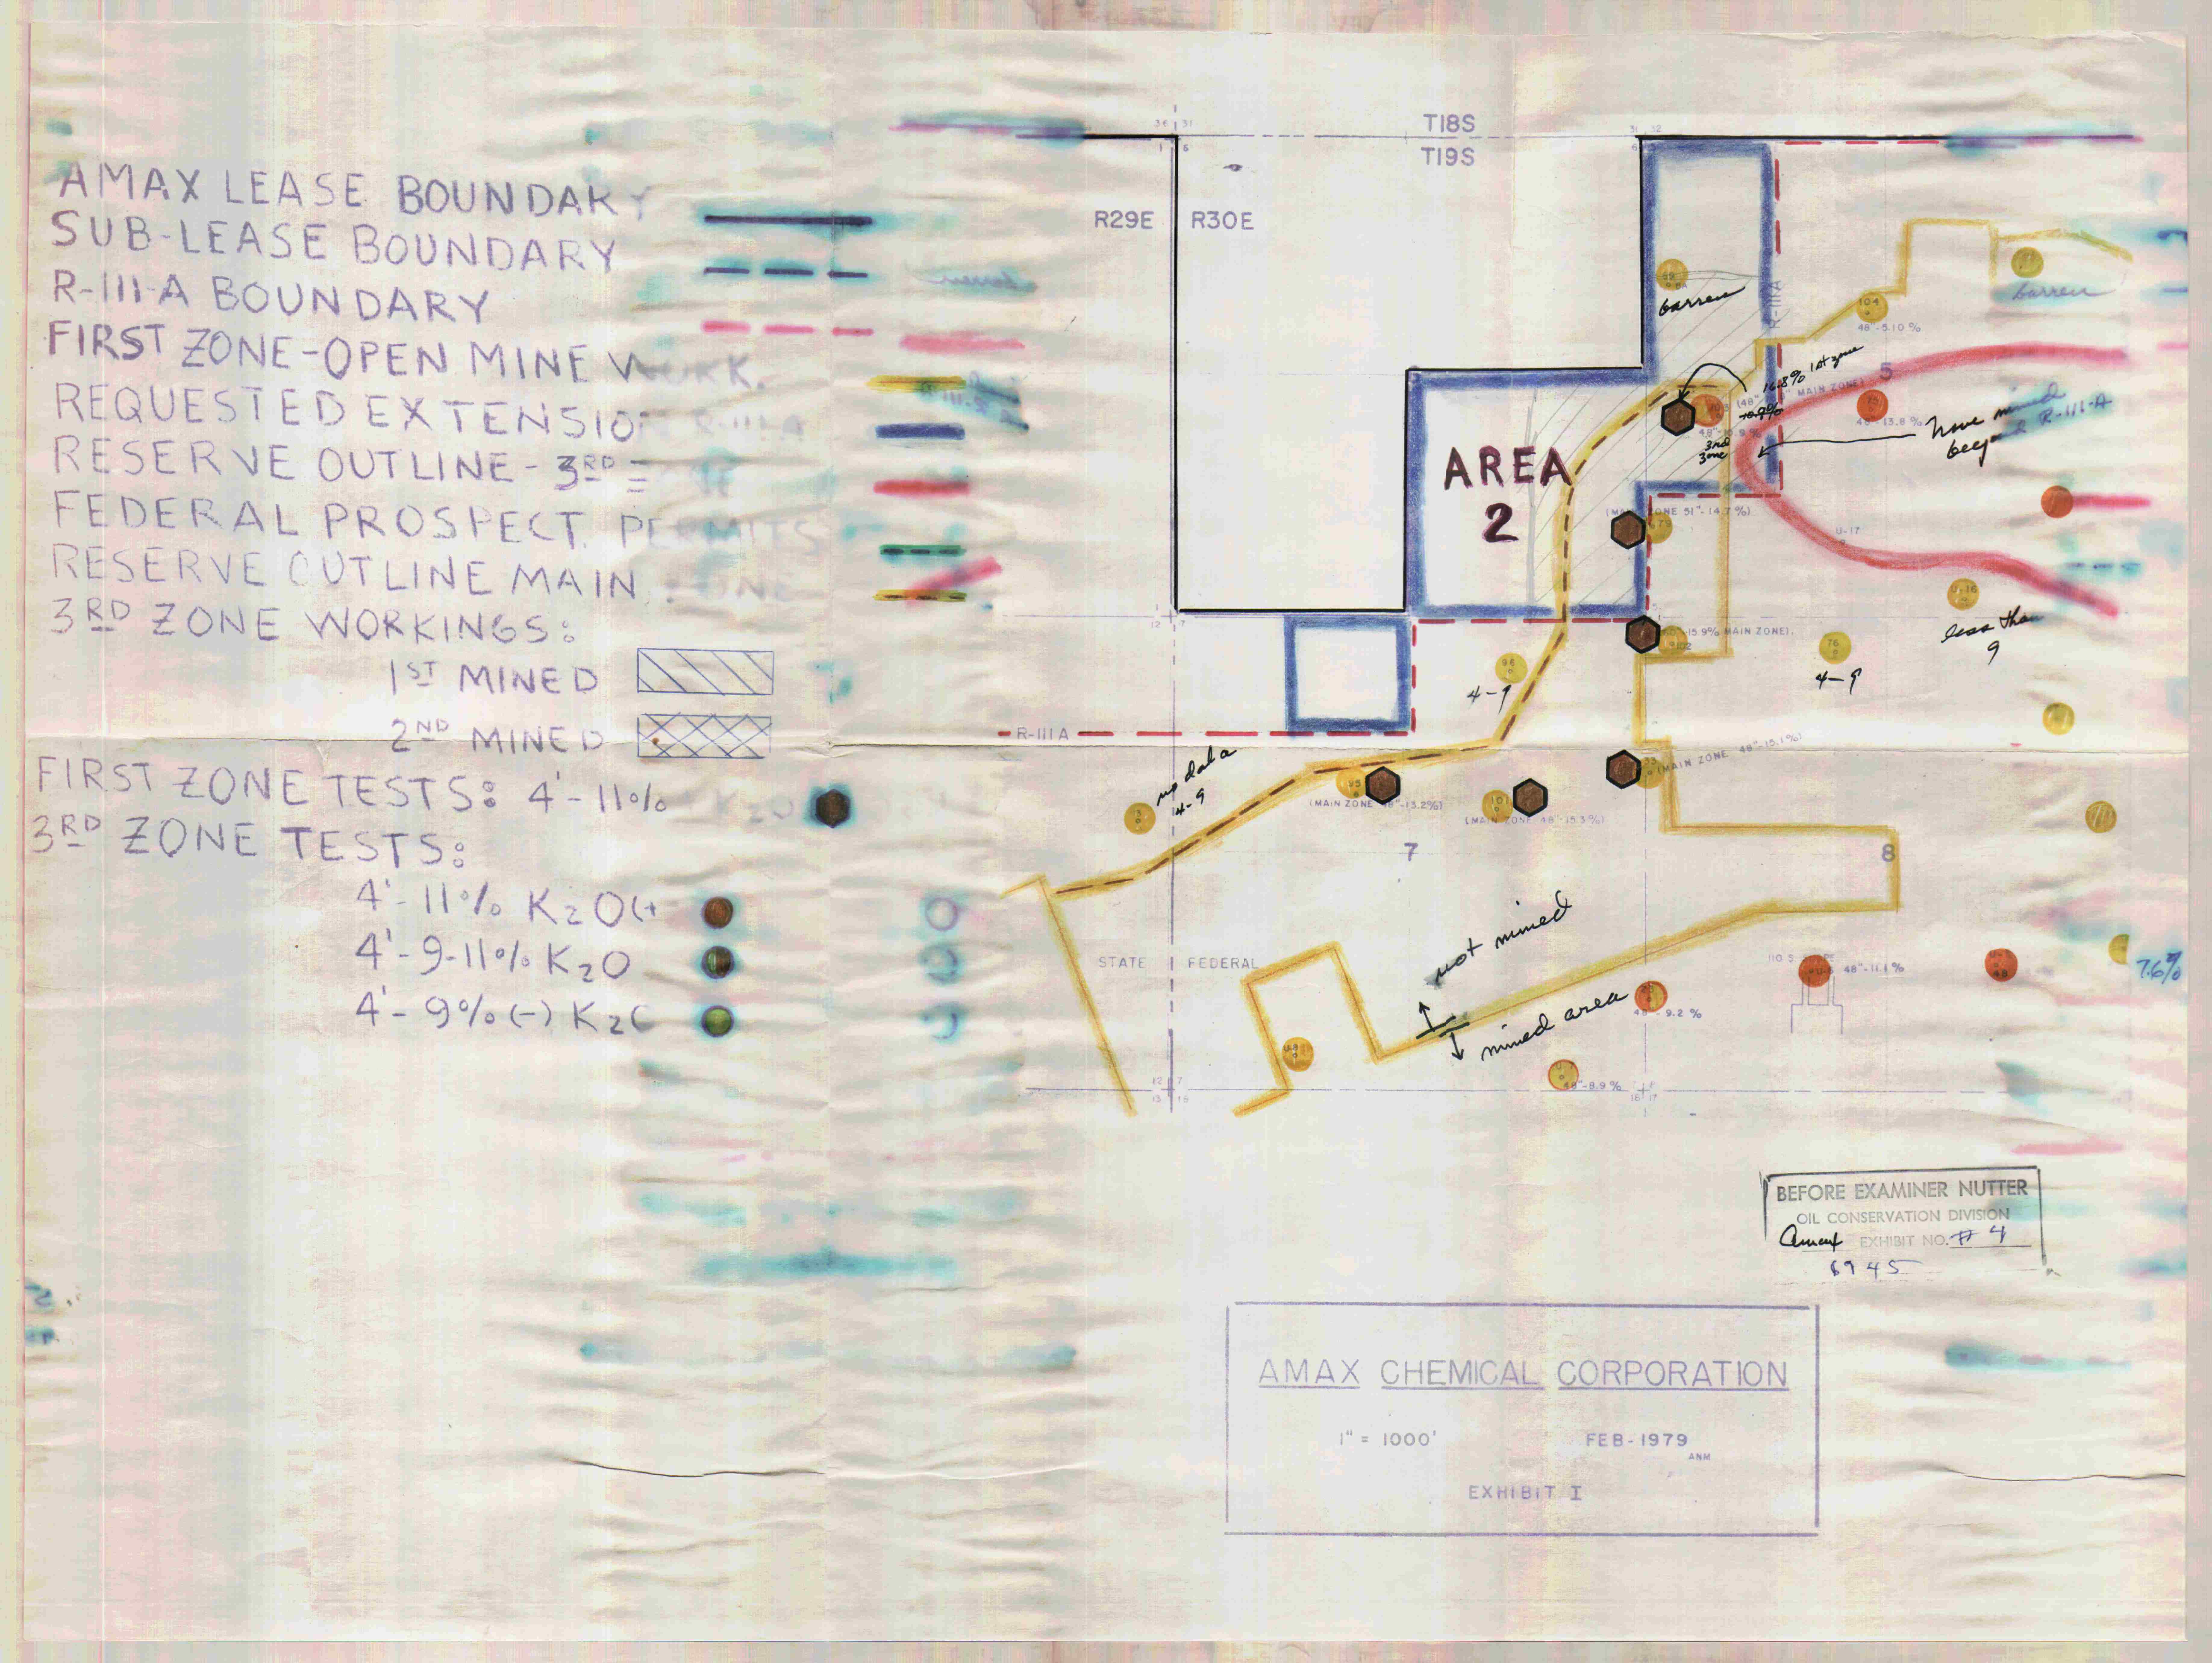 AMAX LEASE BOUNDARY
SUB-LEASE BOUNDARY
R-111-A BOUNDARY
FIRST ZONE-OPEN MINE WORK.
REQUESTED EXTENSIO R-111-A
RESERVE OUTLINE - 3RD
FEDERAL PROSPECT. PERMITS
RESERVE OUTLINE MAIN ZONE
3RD ZONE WORKINGS:
1ST MINED
2ND MINED
FIRST ZONE TESTS: 4'-11% K2O
3RD ZONE TESTS:
4'-11% K2O(+
4'-9-11% K2O
4'-9%(-) K2O
36 31
T18S
31 32
1 6
T19S
R29E R30E
R-111A
barren
barren
104
48"-5.10%
5
16.8% 1st zone
10.9%
3rd zone
48"-13.8%
have mined
beyond R-111-A
AREA
2
(MAIN ZONE 51"-14.7%)
79
U-17
U-16
less than
9
15.9% MAIN ZONE).
76
4-9
98
4-9
12 7
R-111A
no data
4-9
95
(MAIN ZONE 48"-13.2%)
101
(MAIN ZONE 48"-15.3%)
(MAIN ZONE 48"-15.1%)
7
8
STATE FEDERAL
not mined
mined area
48"-11.1%
7.6%
9.2%
48"-8.9%
12 7
13 18
16 17
BEFORE EXAMINER NUTTER
OIL CONSERVATION DIVISION
Amax EXHIBIT NO. #4
6945
AMAX CHEMICAL CORPORATION
1" = 1000' FEB-1979
ANM
EXHIBIT I